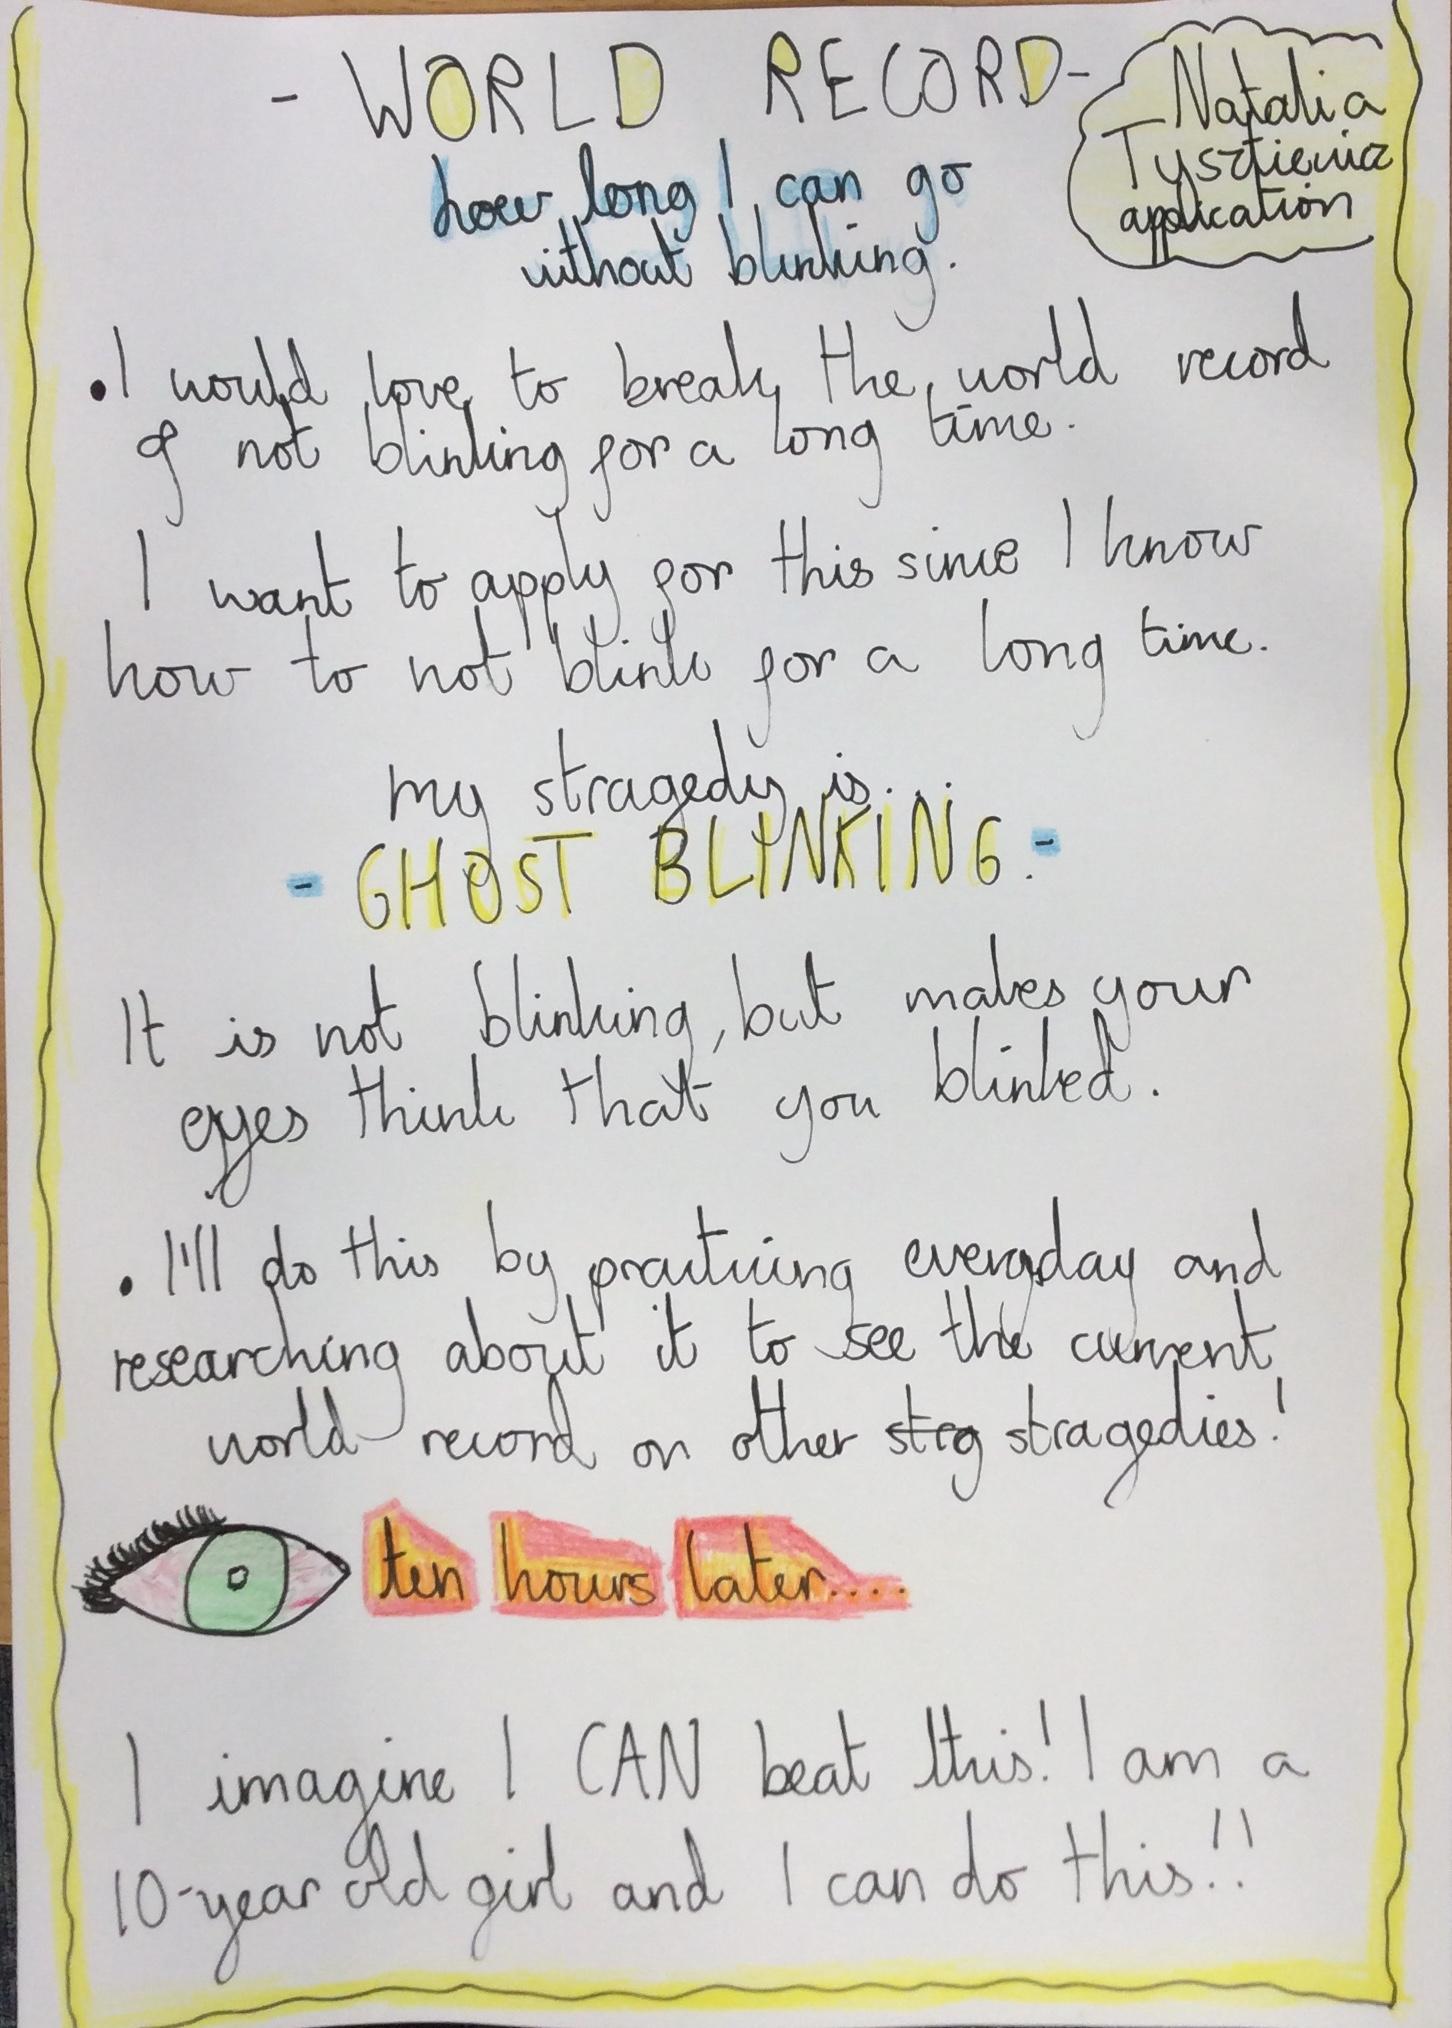 - WORLD RECORD -
how long I can go
without blinking.
Natalia
application
• I would love to break the world record
of not blinking for a long time.
I want to apply for this since I know
how to not blink for a long time.
my stragedy is...
- GHOST BLINKING. -
It is not blinking, but makes your
eyes think that you blinked.
• I'll do this by practicing everyday and
researching about it to see the current
world record on other strg stragedies!
ten hours later....
I imagine I CAN beat this! I am a
10-year old girl and I can do this!!